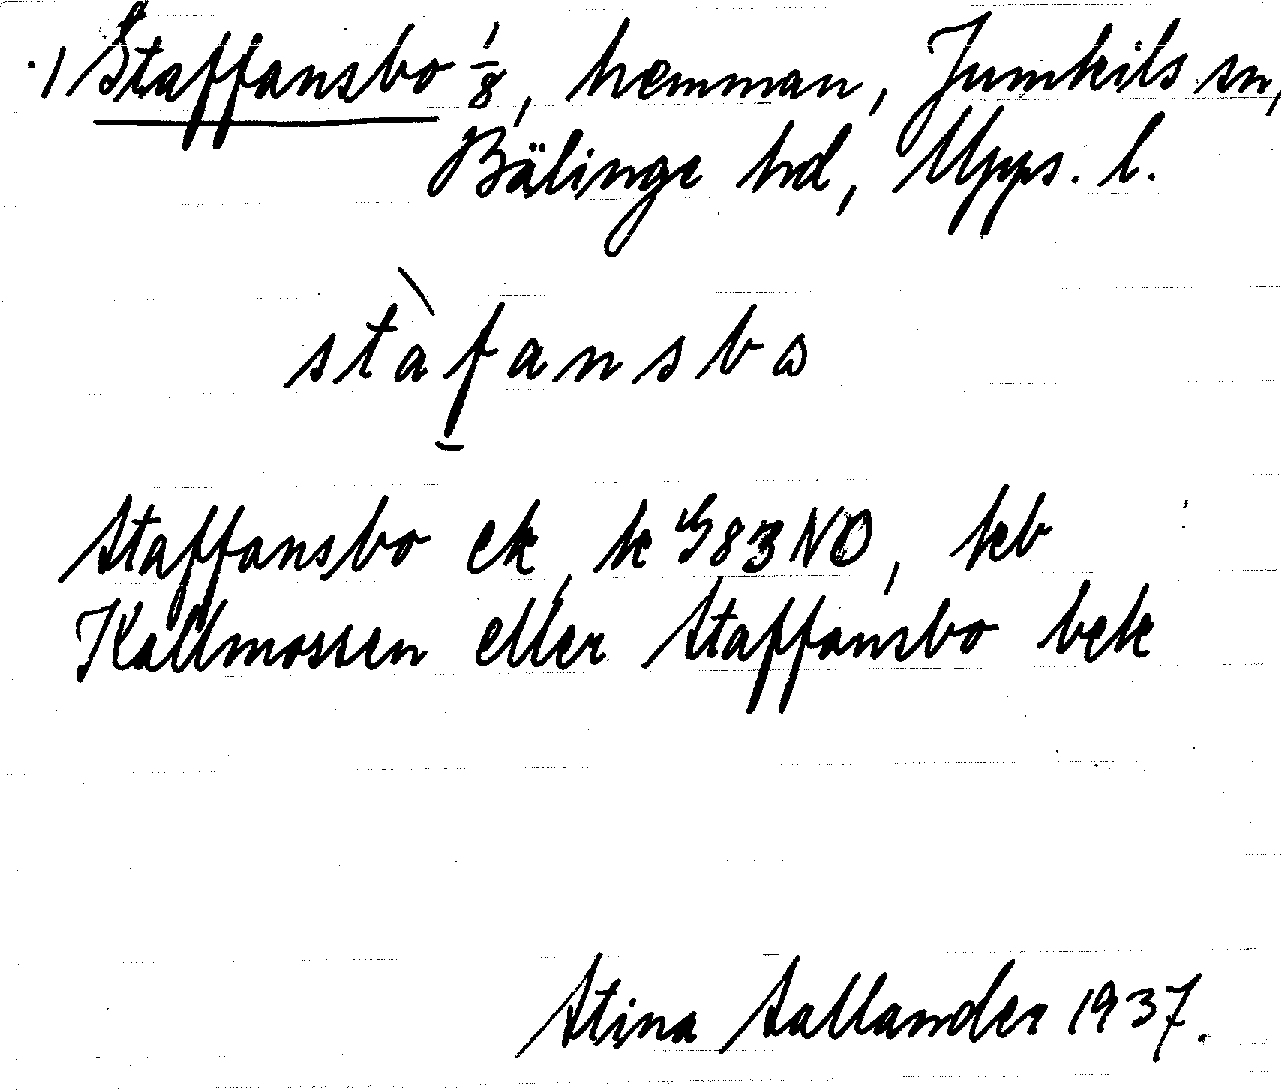 1) Staffansbo 1/8, hemman, Jumkils sn,
Bälinge hd, Upps. l.
stàfansbω
Staffansbo ek, k 83 NO, kb
Källmossen eller Staffansbo bek
Stina Sallander 1937.